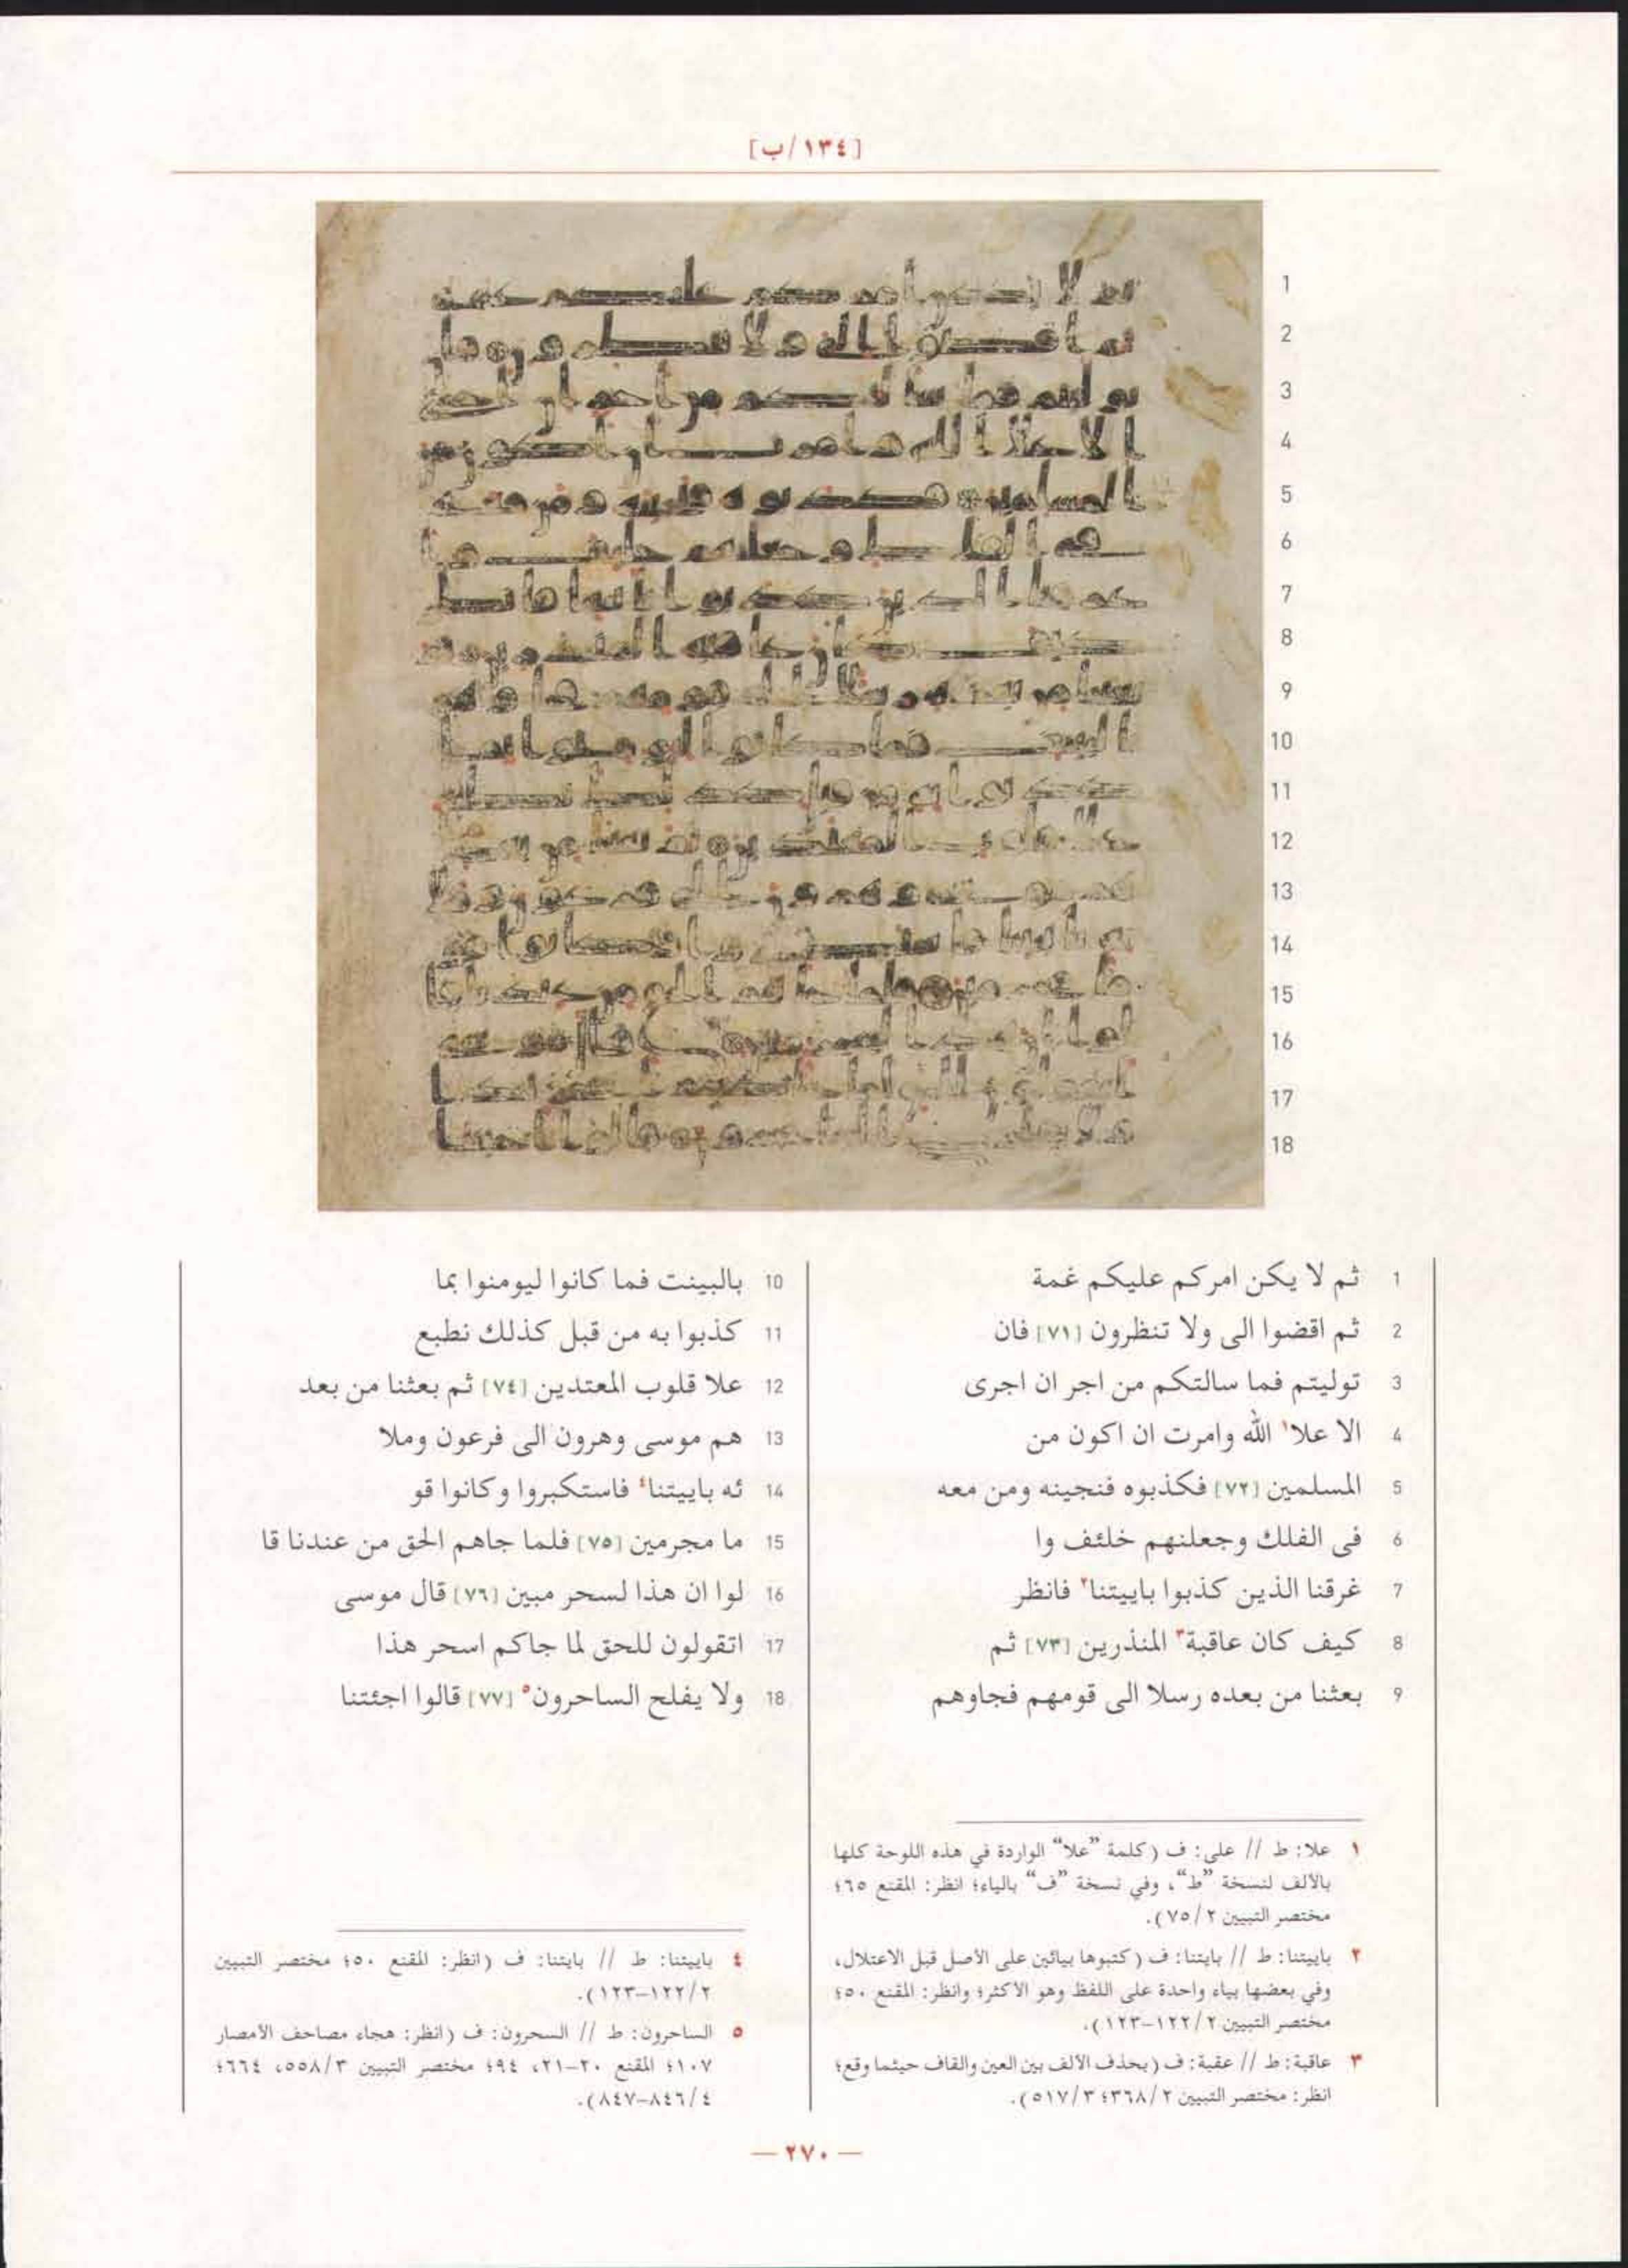 [١٣٤/ب]
1
2
3
4
5
6
7
8
9
10
11
12
13
14
15
16
17
18
1 ثم لا يكن امركم عليكم غمة
2 ثم اقضوا الى ولا تنظرون [٧١] فان
3 توليتم فما سالتكم من اجر ان اجرى
4 الا علا١ الله وامرت ان اكون من
5 المسلمين [٧٢] فكذبوه فنجينه ومن معه
6 فى الفلك وجعلنهم خلئف وا
7 غرقنا الذين كذبوا باييتنا٢ فانظر
8 كيف كان عاقبة٣ المنذرين [٧٣] ثم
9 بعثنا من بعده رسلا الى قومهم فجاوهم
10 بالبينت فما كانوا ليومنوا بما
11 كذبوا به من قبل كذلك نطبع
12 علا قلوب المعتدين [٧٤] ثم بعثنا من بعد
13 هم موسى وهرون الى فرعون وملا
14 ئه باييتنا٤ فاستكبروا وكانوا قو
15 ما مجرمين [٧٥] فلما جاهم الحق من عندنا قا
16 لوا ان هذا لسحر مبين [٧٦] قال موسى
17 اتقولون للحق لما جاكم اسحر هذا
18 ولا يفلح الساحرون٥ [٧٧] قالوا اجئتنا
١ علا: ط // على: ف (كلمة ”علا“ الواردة في هذه اللوحة كلها
بالألف لنسخة ”ط“، وفي نسخة ”ف“ بالياء؛ انظر: المقنع ٦٥؛
مختصر التبيين ٧٥/٢).
٢ باييتنا: ط // بايتنا: ف (كتبوها بيائين على الأصل قبل الاعتلال،
وفي بعضها بياء واحدة على اللفظ وهو الأكثر؛ وانظر: المقنع ٥٠؛
مختصر التبيين ١٢٢/٢-١٢٣).
٣ عاقبة: ط // عقبة: ف (بحذف الألف بين العين والقاف حيثما وقع؛
انظر: مختصر التبيين ٣٦٨/٢؛ ٥١٧/٣).
٤ باييتنا: ط // بايتنا: ف (انظر: المقنع ٥٠؛ مختصر التبيين
١٢٢/٢-١٢٣).
٥ الساحرون: ط // السحرون: ف (انظر: هجاء مصاحف الأمصار
١٠٧؛ المقنع ٢٠-٢١، ٩٤؛ مختصر التبيين ٥٥٨/٣، ٦٦٤؛
٨٤٦/٤-٨٤٧).
— ٢٧٠ —